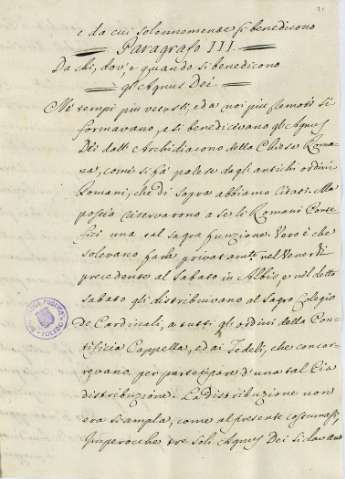 e da cui solennemente si benedicono
Paragrafo III.
Da chi, dov', e quando si benedicono
gl'Agnus Dei.
Ne' tempi più vetusti, e da noi più remoti si
formavano, e si benedicevano gl'Agnus
Dei dall'Archidiacono della Chiesa Roma=
na, come si fà palese dagli antichi ordini
Romani, che di sopra abbiamo citati. Ma
poscia riservarono a se li Romani Ponte=
fici una tal sagra funzione. Vero è che
solevano farla privatamte nel Venerdì
precedente al Sabato in Albis, e nel detto
sabato gli distribuivano al Sagro Collegio
De Cardinali, a tutti gli ordini della Pon=
tificia Cappella, ed ai Fedeli, che concor=
revano per partecipare d'una tal
distribuzione. La distribuzione non
era si ampla, come al presente costumasi,
Imperocchè tre soli Agnus Dei si davano